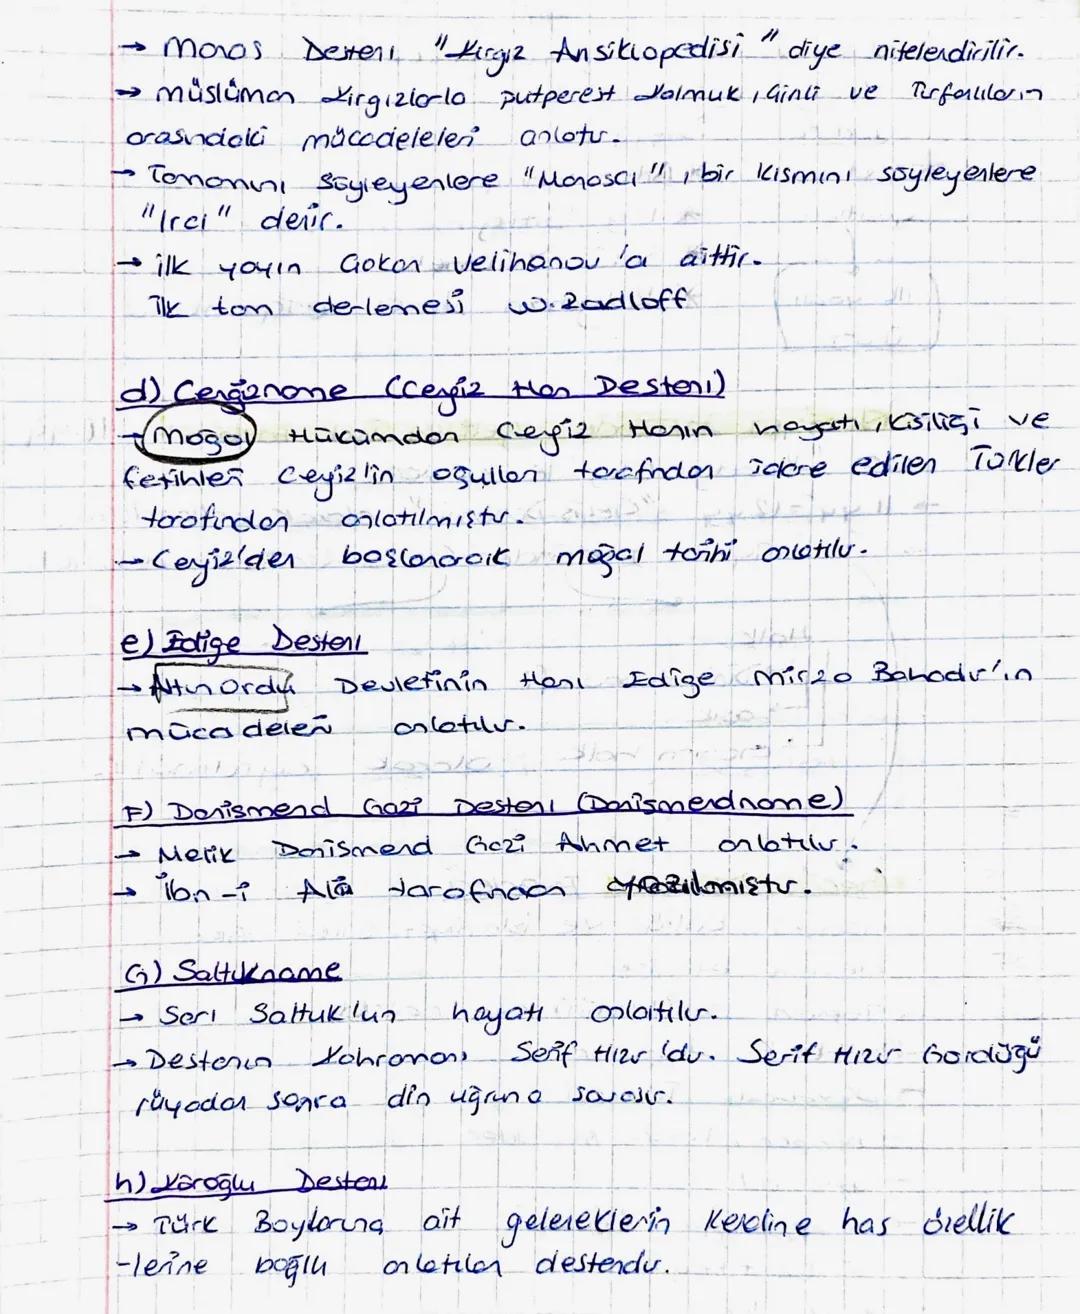 → Manas Destanı "Kırgız Ansiklopedisi" diye nitelendirilir.
→ müslüman Kırgızlarla putperest Kalmuk, Çinli ve Turfanlıların
arasındaki mücadeleleri anlatır.
→ Tamamını söyleyenlere "Manasçı", bir kısmını söyleyenlere
"Irci" denir.
→ ilk yayın Çokan Velihanov'a aittir.
İlk tam derlemesi w.Radloff
d) Cengizname (Cengiz Han Destanı)
→ Moğol Hükümdarı Cengiz Hanın hayatı, kişiliği ve
fetihleri Cengiz'in oğulları tarafından idare edilen Türkler
tarafından anlatılmıştır.
→ Cengiz'den başlanarak moğol tarihi anlatılır.
e) Edige Destanı
→ Altın Ordu Devletinin Hanı Edige mirza Bahadır'ın
mücadeleri anlatılır.
F) Danişmend Gazi Destanı (Danişmendname)
→ Melik Danişmend Gazi Ahmet anlatılır.
→ İbn-i Ala tarafından yazılmıştır.
G) Saltukname
→ Sarı Saltuk'un hayatı anlatılır.
→ Destanın kahramanı Şerif Hızır'dır. Şerif Hızır Gördüğü
rüyadan sonra din uğruna savaşır.
h) Köroğlu Destanı
→ Türk Boylarına ait geleneklerin kendine has özellik
-lerine bağlı anlatılan destandır.